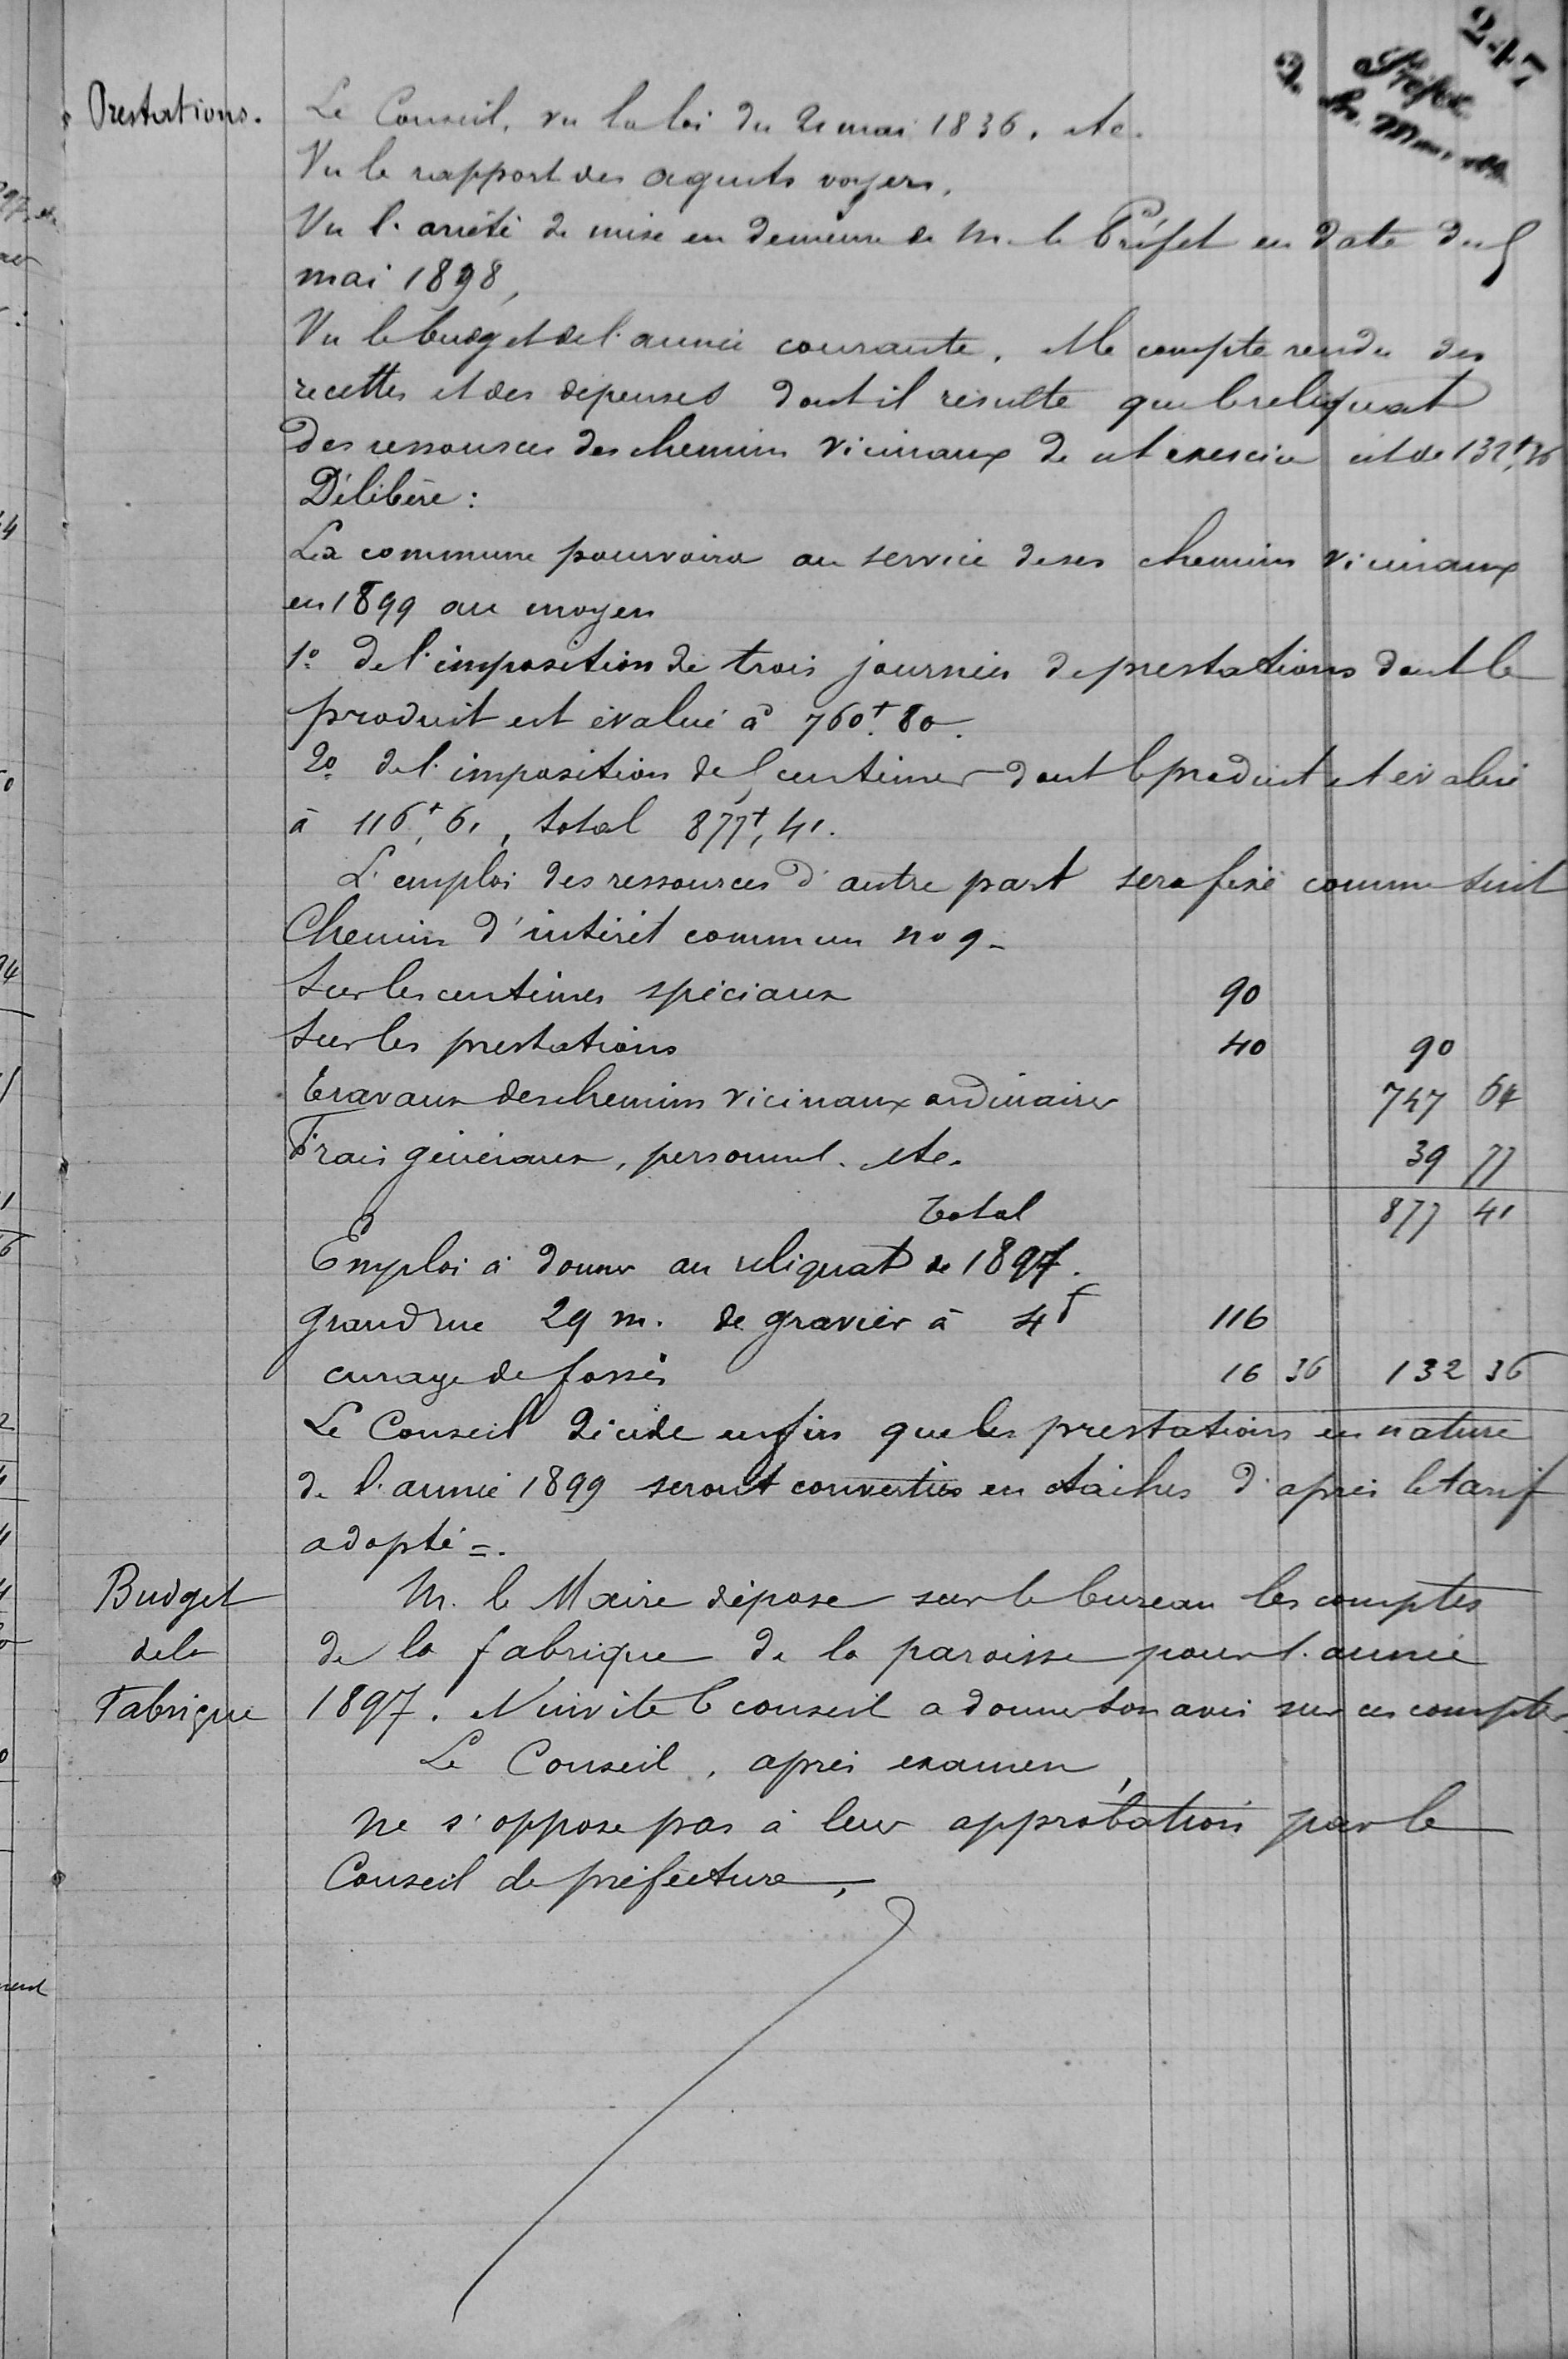 247
Prestations. Le Conseil, vu la loi du 21 mai 1836, etc.
Vu le rapport des agents voyers,
Vu l'arrêté de mise en demeure de M. le Préfet en date du 5
mai 1898,
Vu le budget de l'année courante, et le compte rendu des
recettes et des dépenses dont il résulte que le reliquat
des ressources des chemins vicinaux de cet exercice est de 132f,36
Délibère :
La commune pourvoira au service de ses chemins vicinaux
en 1899 au moyen
1º de l'imposition de trois journées de prestations dont le
produit est évalué à 760f.80.
2º de l'imposition de 5 centimes dont le produit est évalué
à 116f,61, total 877f,41.
L'emploi des ressources d'autre part sera fixé comme suit
Chemin d'intérêt commun no 9-
Sur les centimes spéciaux 90
Sur les prestations 40 90
Travaux des chemins vicinaux ordinaires 747 64
Frais généraux, personnel. etc. 39 77
Total 877 41
Emploi à donner au reliquat de 1897.
Grand rue 29 m. de gravier à 4f 116
curage de fossés 16 36 132 36
Le Conseil décide enfin que les prestations en nature
de l'année 1899 seront converties en tâches d'après le tarif
adopté =.
Budget M. le Maire dépose sur le bureau les comptes
de la de la fabrique de la paroisse pour l'année
Fabrique 1897. Il invite le conseil a donner son avis sur ces comptes.
Le Conseil, après examen,
ne s'oppose pas à leur approbation par le
Conseil de préfecture,